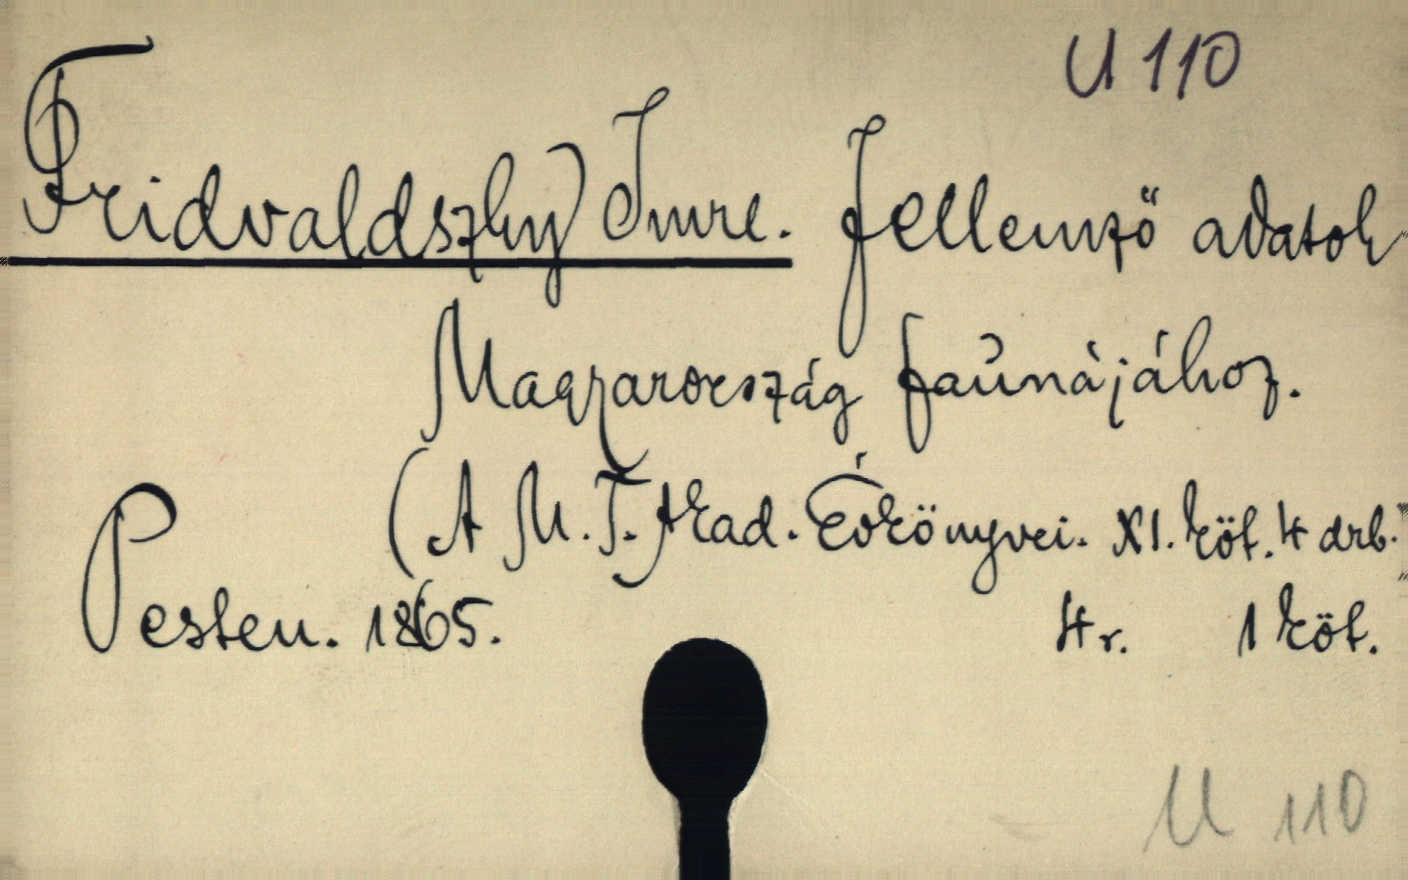 U 110
Fridvaldszky Imre. Jellemző adatok
Magyarország faunájához.
(A M. T. Akad. Évkönyvei. XI. köt. 4 drb.
Pesten. 1865. 4r. 1 köt.
U 110